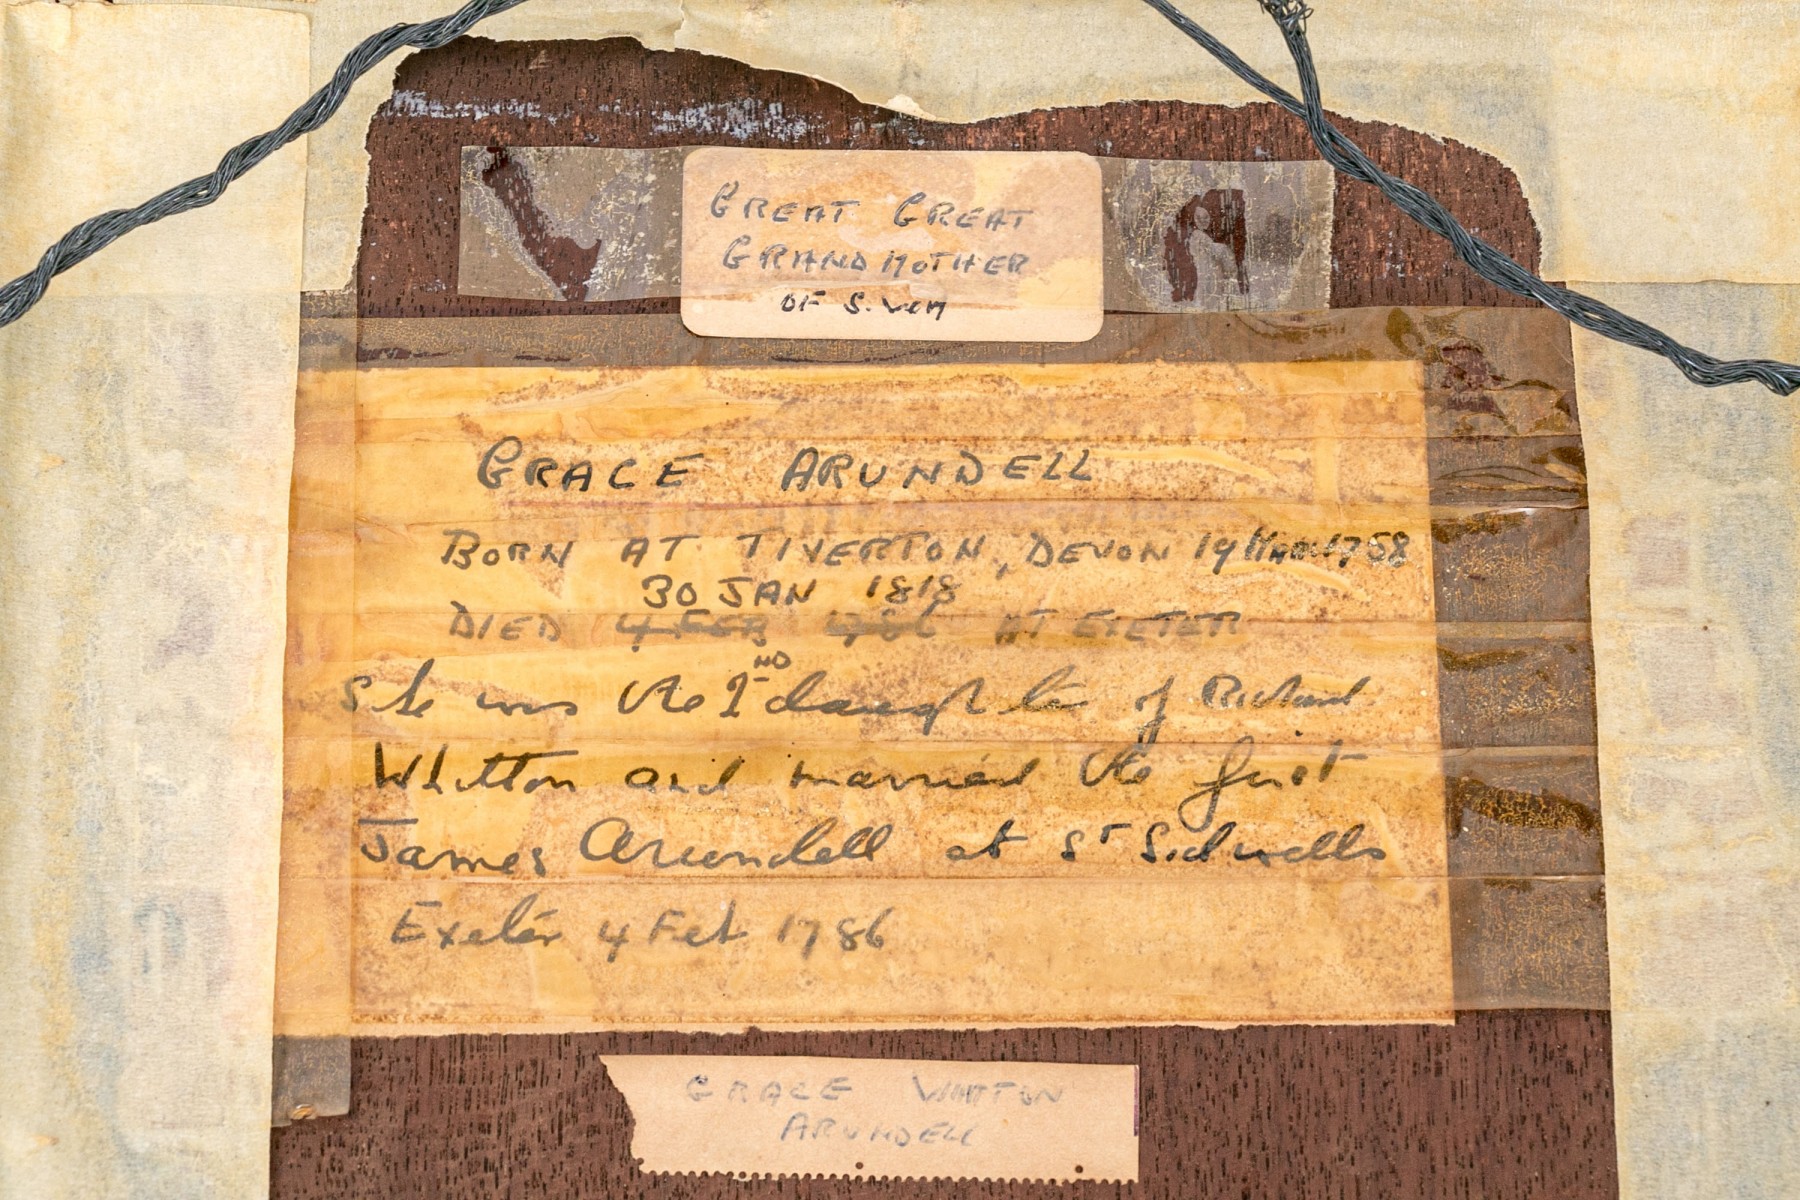 GREAT GREAT
GRANDMOTHER
OF S.
GRACE ARUNDELL
BORN AT TIVERTON, DEVON 19 MARCH 1758
30 JAN 1818
DIED 4 FEB 1786 AT EXETER
She was the 2ND daughter of Richard
Whitton and married the first
James Arundell at St Sidwells
Exeter 4 Feb 1786
GRACE WHITTON
ARUNDELL